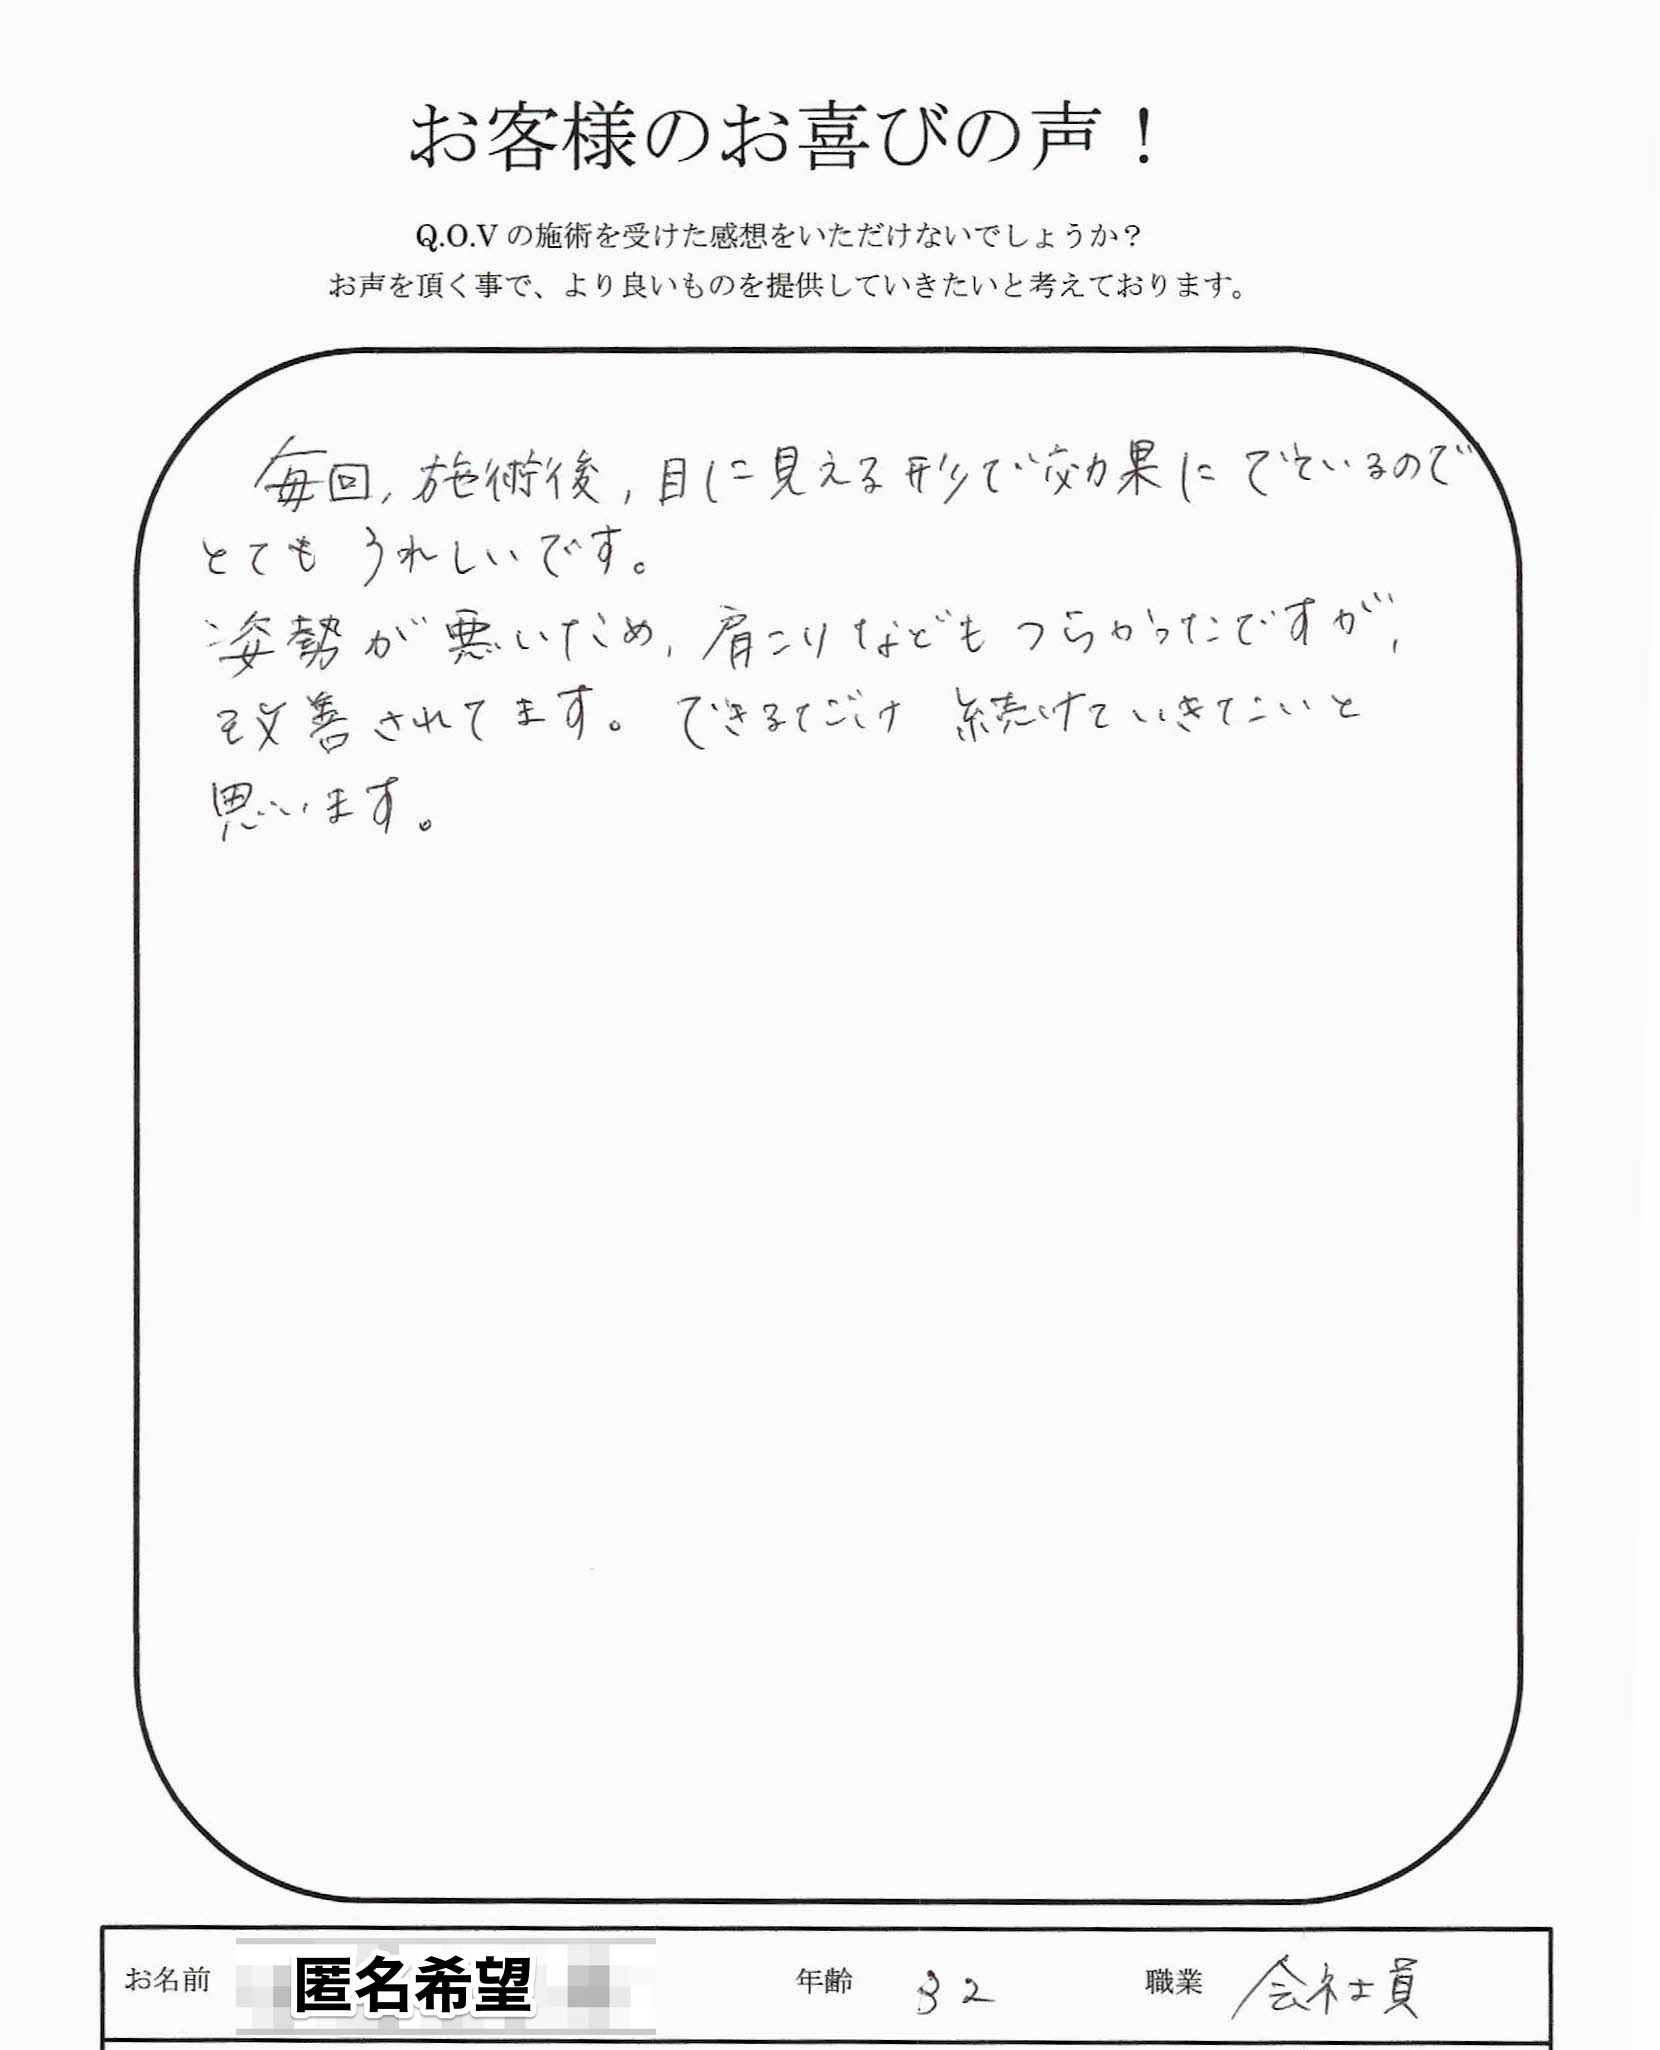 お客様のお喜びの声！
Q.O.Vの施術を受けた感想をいただけないでしょうか？
お声を頂く事で、より良いものを提供していきたいと考えております。
毎回,施術後,目に見える形で効果にでているので
とても うれしいです。
姿勢が悪いため,肩こりなどもつらかったですが,
改善されてます。できるだけ 続けていきたいと
思います。
お名前 匿名希望 年齢 32 職業 会社員